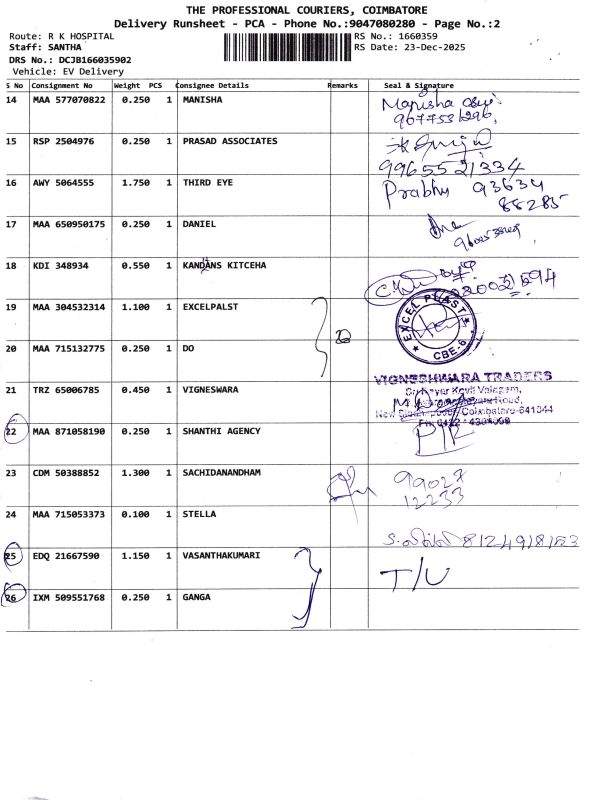 THE PROFESSIONAL COURIERS, COIMBATORE
Delivery Runsheet - PCA - Phone No.:9047080280 - Page No.:2
Route: R K HOSPITAL RS No.: 1660359
Staff: SANTHA RS Date: 23-Dec-2025
DRS No.: DCJB166035902
Vehicle: EV Delivery
S No Consignment No Weight PCS Consignee Details Remarks Seal & Signature
14 MAA 577070822 0.250 1 MANISHA Manisha
9677531296
15 RSP 2504976 0.250 1 PRASAD ASSOCIATES
9965521334
16 AWY 5064555 1.750 1 THIRD EYE Prabhu 93634
88285
17 MAA 650950175 0.250 1 DANIEL
18 KDI 348934 0.550 1 KANDANS KITCEHA
19 MAA 304532314 1.100 1 EXCELPALST EXCEL PLAST CBE-6
20 MAA 715132775 0.250 1 DO
21 TRZ 65006785 0.450 1 VIGNESWARA VIGNESHWARA TRADERS
Coimbatore-641044
22 MAA 871058190 0.250 1 SHANTHI AGENCY
23 CDM 50388852 1.300 1 SACHIDANANDHAM 9902
12233
24 MAA 715053373 0.100 1 STELLA
25 EDQ 21667590 1.150 1 VASANTHAKUMARI T/U
26 IXM 509551768 0.250 1 GANGA